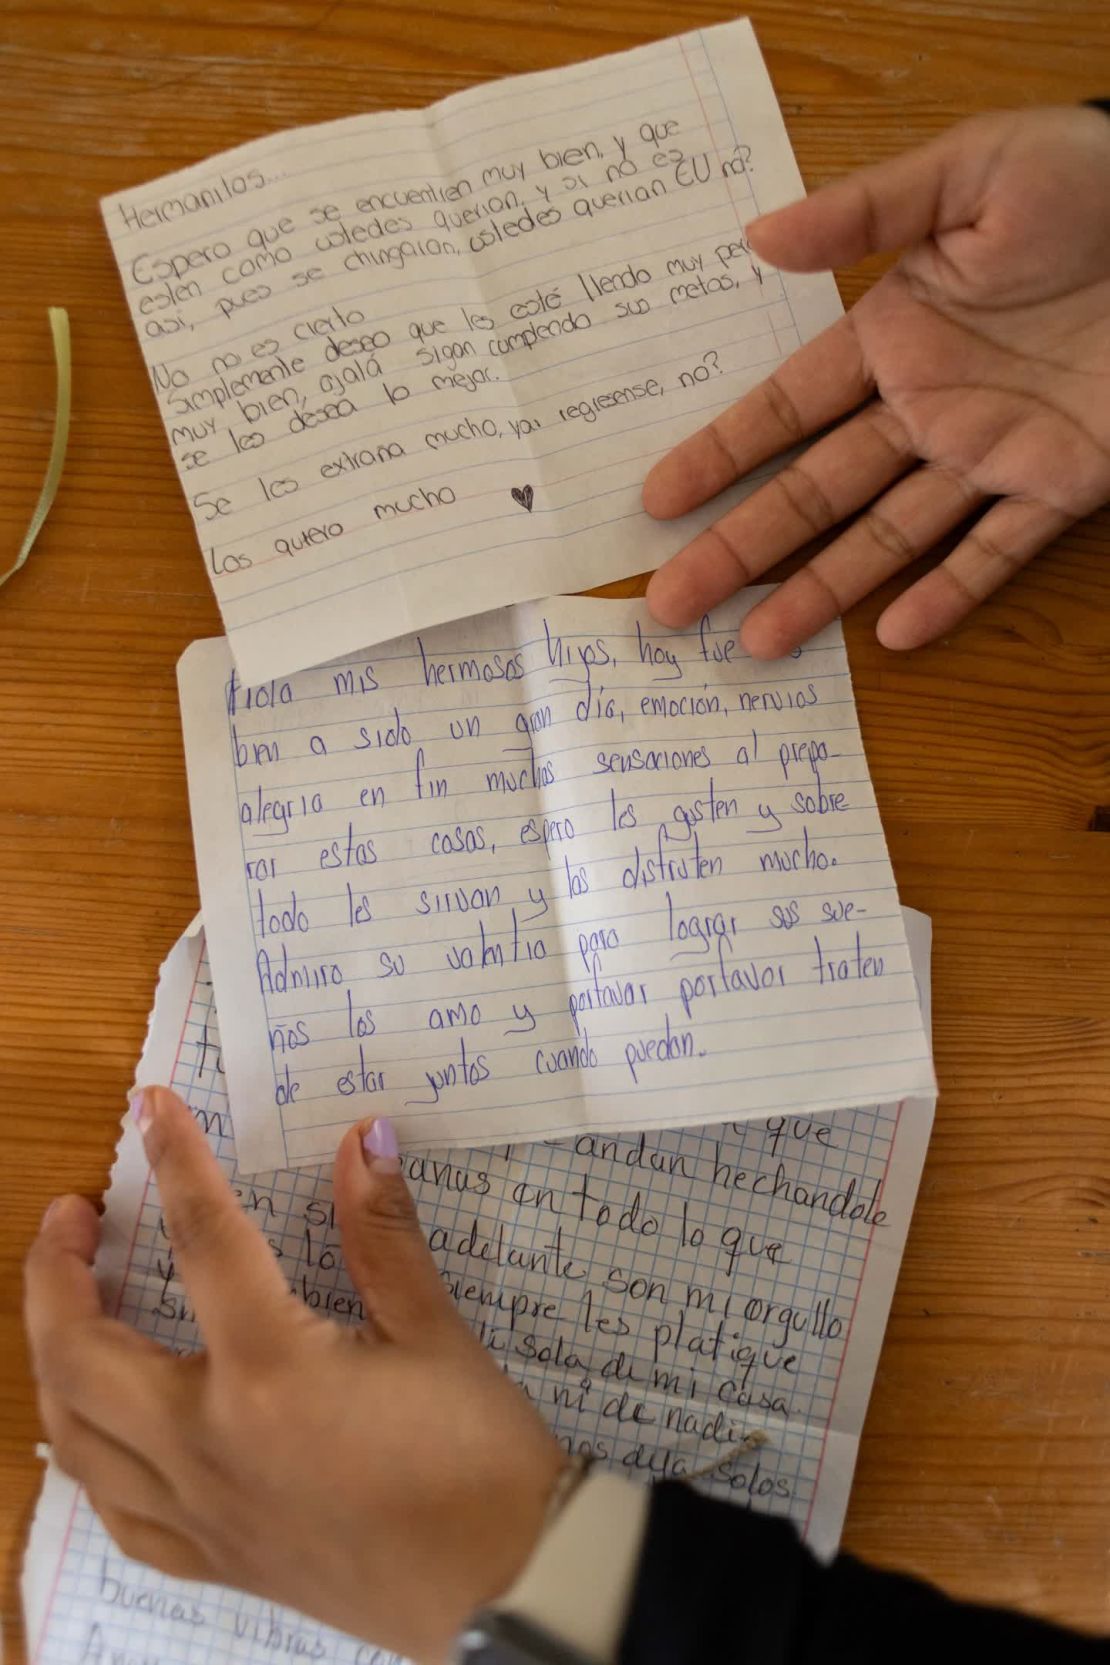 Hermanitos...
Espero que se encuentren muy bien, y que
estén como ustedes querian, y si no es
asi, pues se chingaron, ustedes querian EU no?
No no es cierto
Simplemente deseo que les esté llendo muy
muy bien, ojalá sigan cumpliendo sus metas, y
se les desea lo mejor.
Se les extraña mucho, ya regresense, no?
Los quiero mucho ♥
Hola mis hermosos hijos, hoy fue
bien a sido un gran día, emoción, nervios
alegria en fin muchas sensaciones al prepa-
rar estas cosas, espero les gusten y sobre
todo les sirvan y las disfruten mucho.
Admiro su valentia para lograr sus sue-
ños los amo y porfavor porfavor traten
de estar juntos cuando puedan.
que
andan hechandole
ganas en todo lo que
lo adelante son mi orgullo
y siempre les platique
sola de mi casa.
ni de nadie
solos
buenas vibras